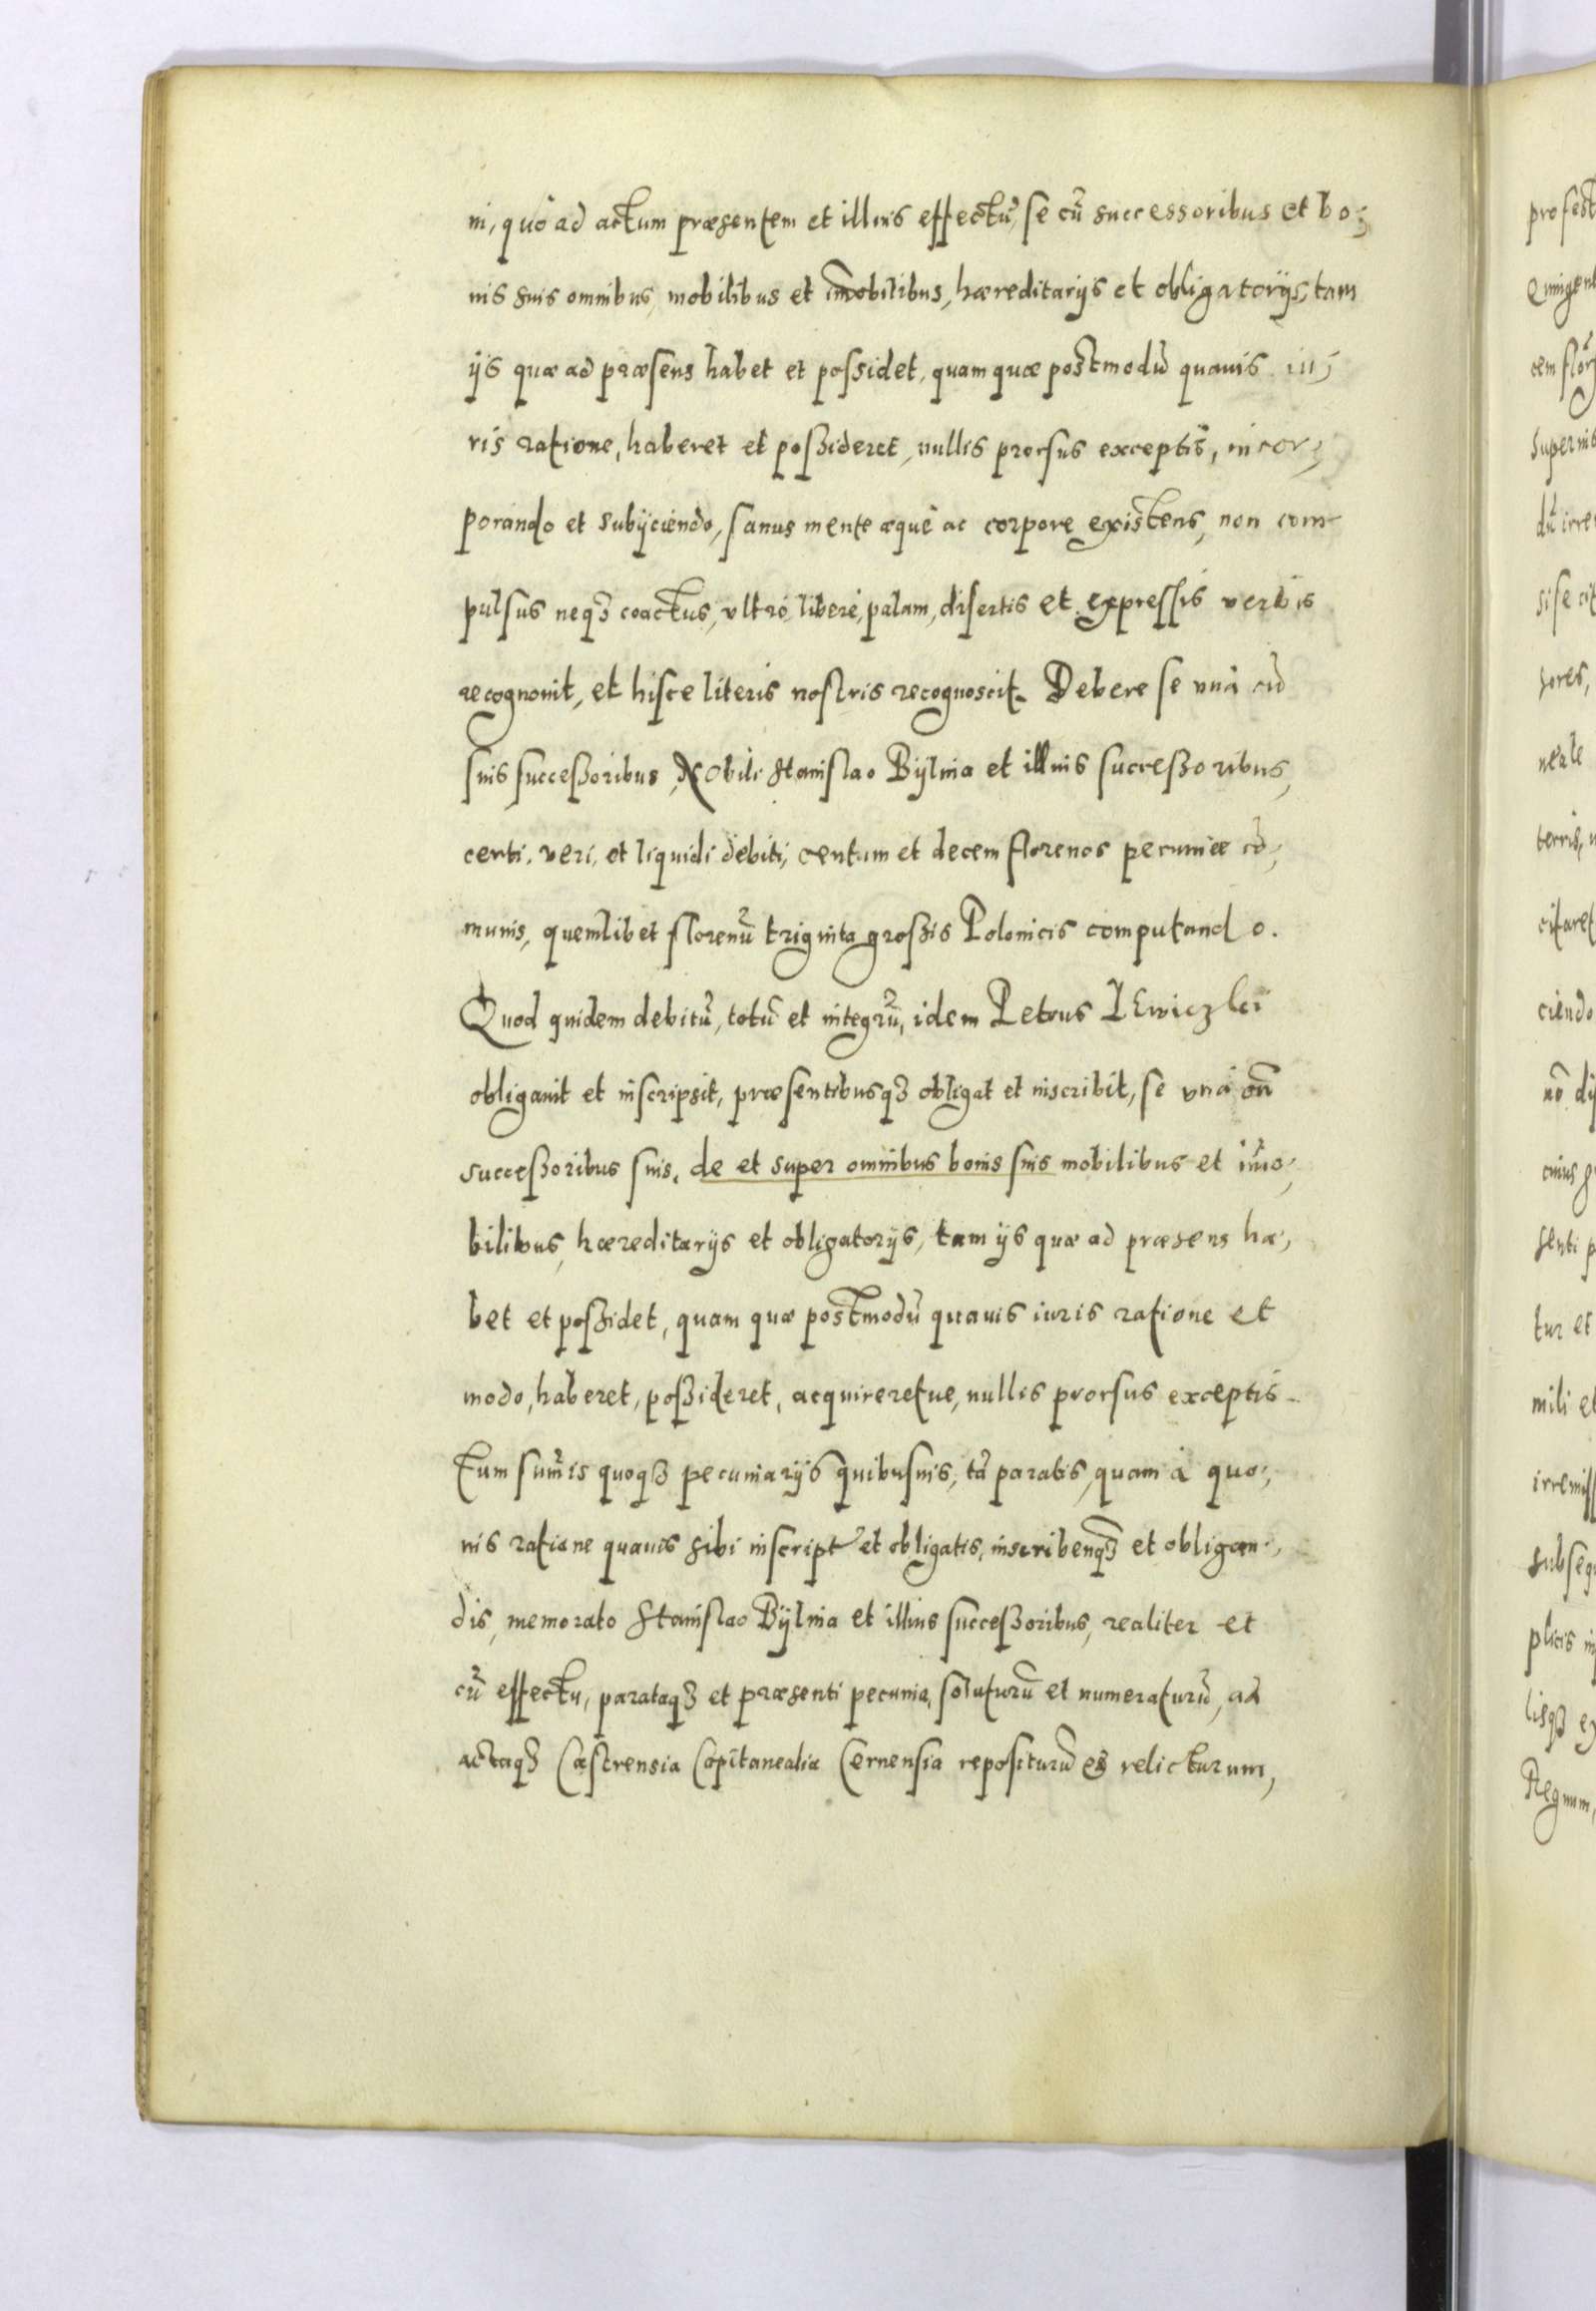 ni, quo ad actum præsentem et illius effectū, se cū successoribus et bo:
nis suis omnibus, mobilibus et im̄obilibus, hæreditarijs et obligatorijs, tam
ijs quæ ad præsens habet et possidet, quam quæ postmodū quauis iu;
ris ratione, haberet et poßideret, nullis prorsus exceptis, incor;
porando et subijciendo, sanus mente æquè ac corpore existens, non com
pulsus neqꝫ coactus, vltrò, liberè, palam, disertis et expressis verbis
recognouit, et hisce literis nostris recognoscit. Debere se vnà cū
suis succeßoribus, Nobili Stanislao Bÿlina et illius succeßoribus,
certi, veri, et liquidi debiti, centum et decem florenos pecuniæ cō;
munis, quemlibet florenū triginta großis Polonicis computando.
Quod quidem debitū, totū et integrū, idem Petrus
obligauit et inscripsit, præsentibusqꝫ obligat et inscribit, se vnà cū
succeßoribus suis, de et super omnibus bonis suis mobilibus et im̄o;
bilibus, hæreditarijs et obligatorijs, tam ijs quæ ad præsens ha;
bet et poßidet, quam quæ postmodū quauis iuris ratione et
modo, haberet, poßideret, acquireretue, nullis prorsus exceptis
Tum sum̄is quoqꝫ pecuniarijs quibusuis, tā paratis, quam à quo;
uis ratione quauis sibi inscript et obligatis, inscribenqꝫ et obligan;
dis, memorato Stanislao Bÿlina et illius succeßoribus, realiter et
cū effectu, parataqꝫ et præsenti pecunia, soluturū et numeraturū, ad
actaqꝫ Castrensia Capitanealia Cernensia repositurū et relicturum,
profest